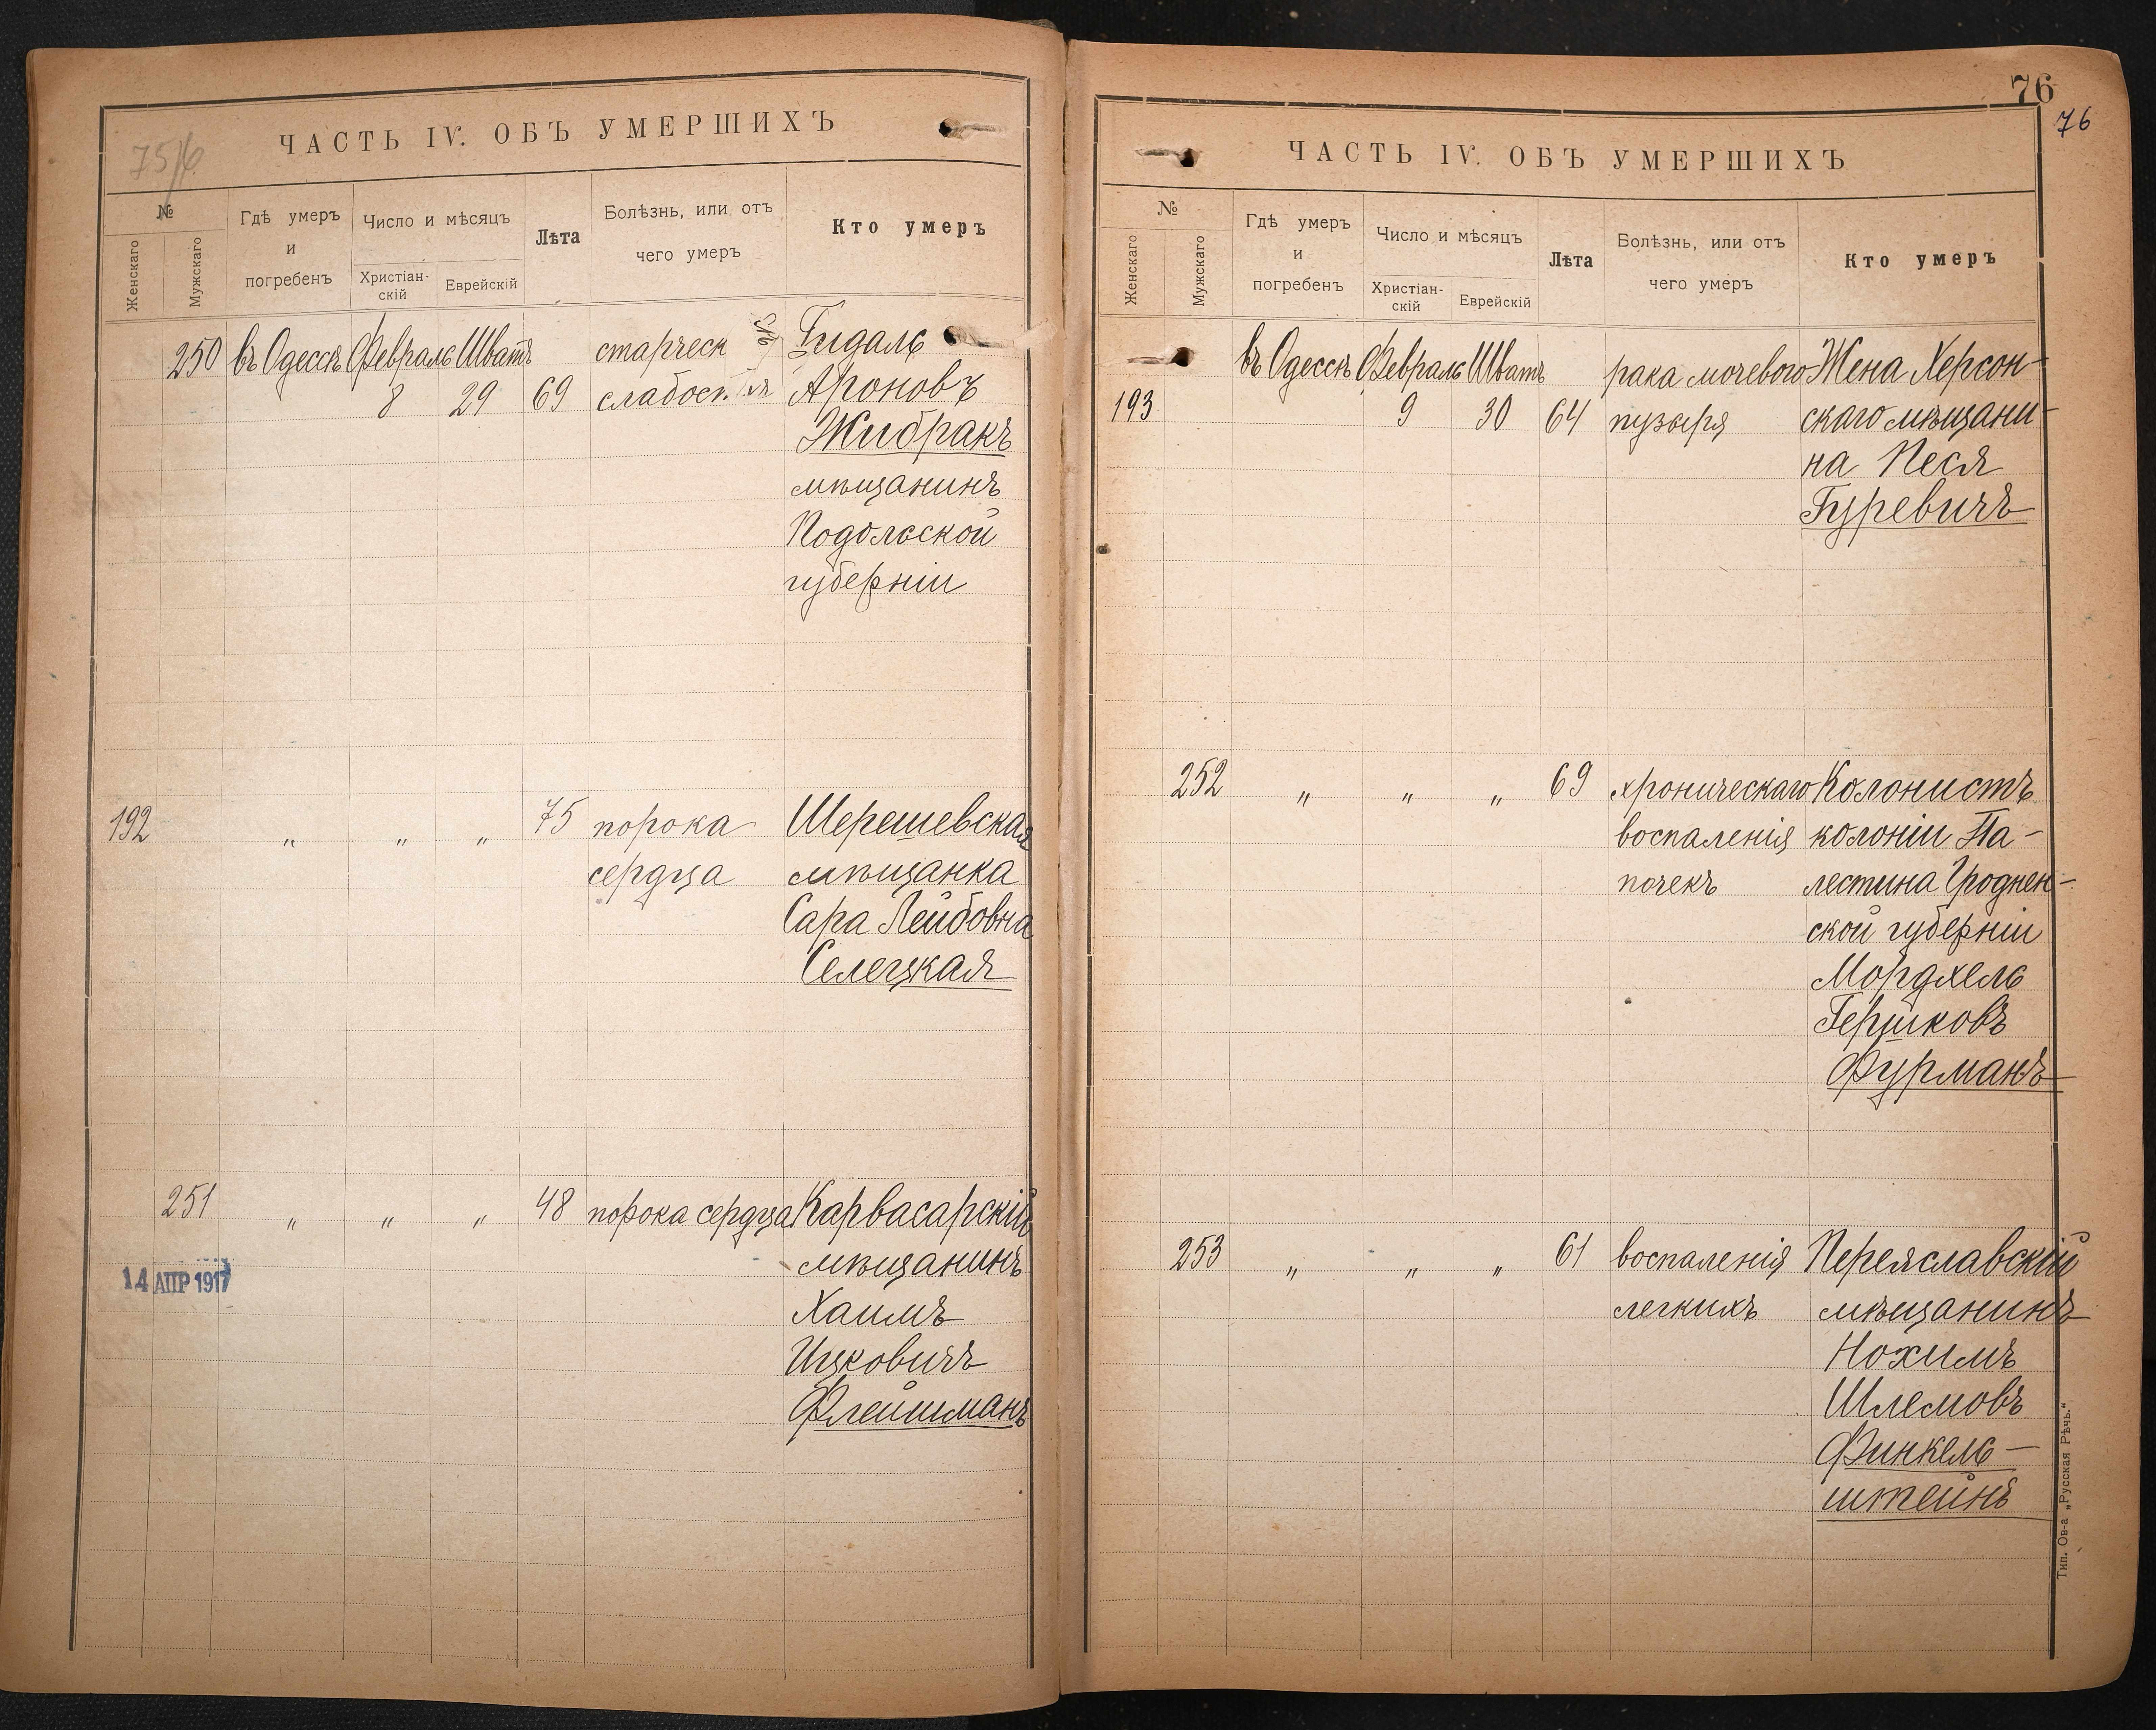 75/6
ЧАСТЬ IV. ОБЪ УМЕРШИХЪ
№
Женскаго
Мужскаго
Гдѣ умеръ
и
погребенъ
Число и мѣсяцъ
Христіан-
скій
Еврейскій
Лѣта
Болѣзнь, или отъ
чего умеръ
Кто умеръ
250 въ Одессѣ Февраль Шватъ старческ Гидаль
8 29 69 слабост. Ароновъ
Жибракъ
мѣщанинъ
Подольской
губерніи
192 " " " 75 порока Шерешевская
сердца мѣщанка
Сара Лейбовна
Селецкая
251 " " " 48 порока сердца Карвасарскій
14 АПР 1917 мѣщанинъ
Хаимъ
Ицковичъ
Флейшманъ
76
76
ЧАСТЬ IV. ОБЪ УМЕРШИХЪ
№
Женскаго
Мужскаго
Гдѣ умеръ
и
погребенъ
Число и мѣсяцъ
Христіан-
скій
Еврейскій
Лѣта
Болѣзнь, или отъ
чего умеръ
Кто умеръ
въ Одессѣ Февраль Шватъ рака мочевого Жена Херсон-
193 9 30 64 пузыря скаго мѣщани-
на Песя
Гуревичъ
252 " " " 69 хроническаго Колонистъ
воспаленія колоніи Па-
почекъ лестина Гроднен-
ской губерніи
Мордхель
Гершковъ
Фурманъ
253 " " " 61 воспаленія Переяславскій
легкихъ мѣщанинъ
Нохимъ
Шлемовъ
Финкель-
штейнъ
Тип. Ов-а „Русская Рѣчь."